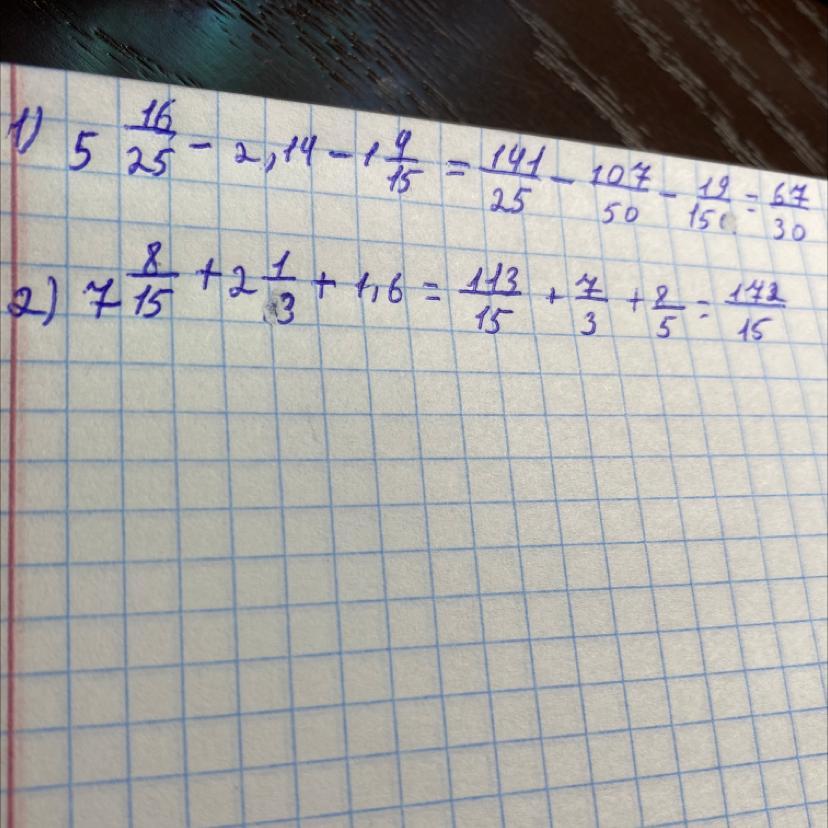 1) 5 16/25 - 2,14 - 1 4/15 = 141/25 - 107/50 - 19/15 = 67/30
2) 7 8/15 + 2 1/3 + 1,6 = 113/15 + 7/3 + 8/5 = 172/15